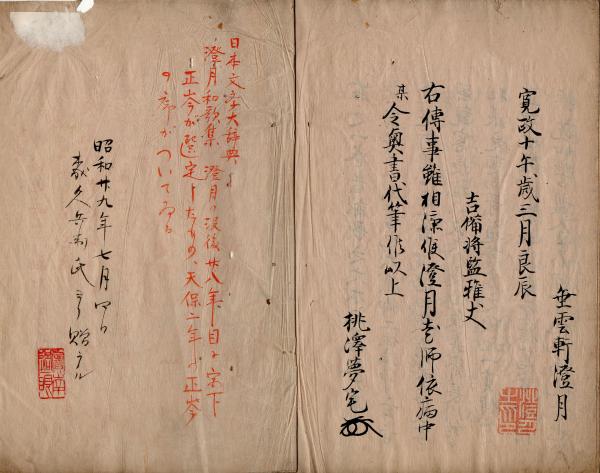 寛政十午歳三月良辰
垂雲軒澄月
吉備将監雅丈
右傳事雖相濟候澄月老師依病中
某令奥書代筆候以上
桃澤夢宅
日本文学大辞典
澄月和歌集 澄月の没後廿八年目に宗下
正岑が選定したもの、天保二年の正岑
の序がついてゐる
昭和廿九年七月
氏より贈ラル